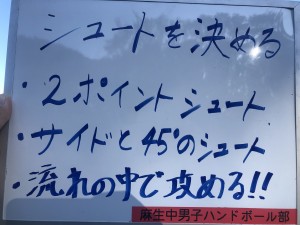 シュートを決める
・2ポイントシュート
・サイドと45°のシュート
・流れの中で攻める!!
麻生中男子ハンドボール部